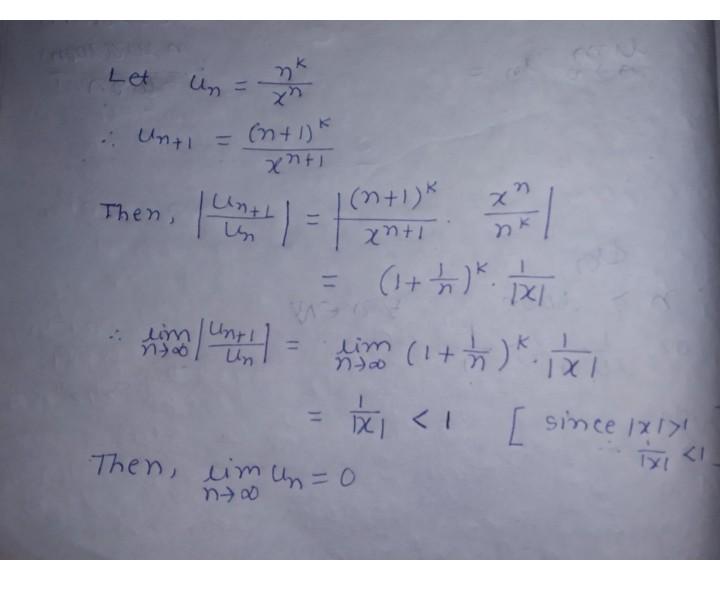 Let u_n = n^k / x^n
∴ u_{n+1} = (n+1)^k / x^{n+1}
Then, |u_{n+1} / u_n| = |(n+1)^k / x^{n+1} · x^n / n^k|
= (1 + 1/n)^k · 1/|x|
∴ lim_{n→∞} |u_{n+1} / u_n| = lim_{n→∞} (1 + 1/n)^k · 1/|x|
= 1/|x| < 1 [ since |x|>1
∴ 1/|x| < 1
Then, lim_{n→∞} u_n = 0